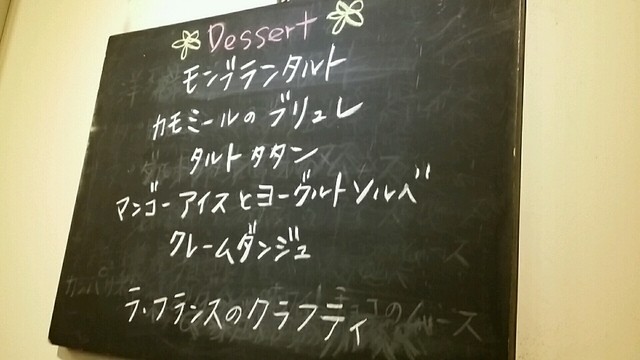 Dessert
モンブランタルト
カモミールのブリュレ
タルトタタン
マンゴーアイスとヨーグルトソルベ
クレームダンジュ
ラ・フランスのクラフティ